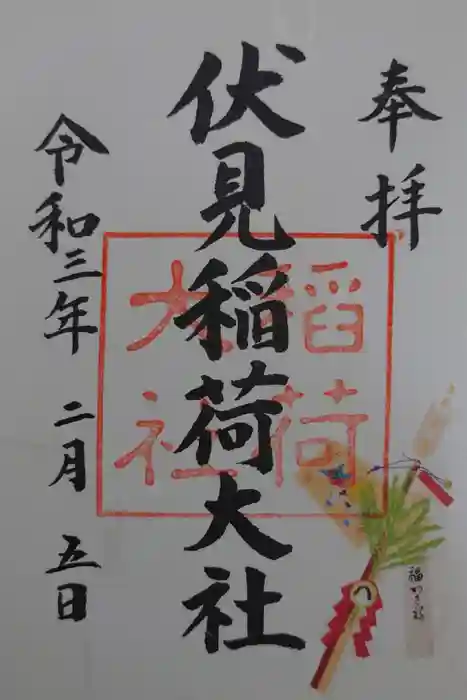 奉拝
伏見稲荷大社
稲荷
大社
令和三年 二月 五日